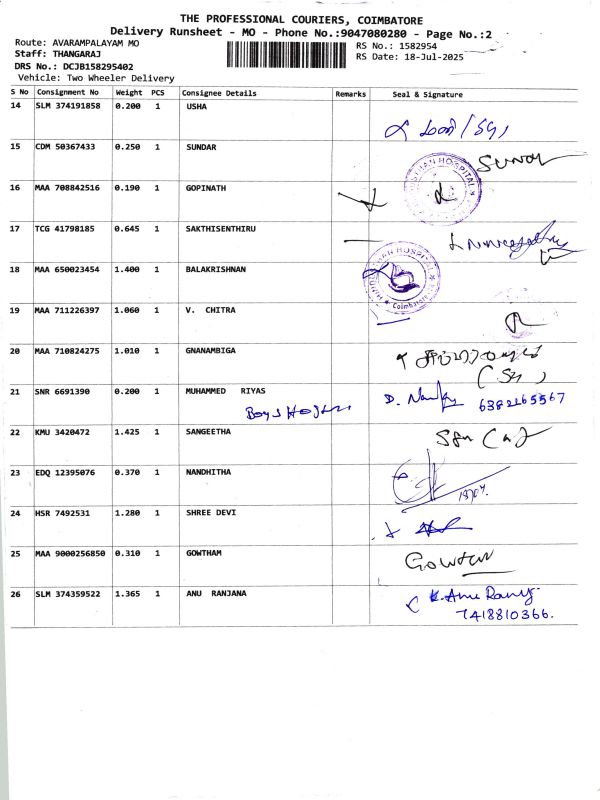 THE PROFESSIONAL COURIERS, COIMBATORE
Delivery Runsheet - MO - Phone No.:9047080280 - Page No.:2
Route: AVARAMPALAYAM MO
RS No.: 1582954
Staff: THANGARAJ
RS Date: 18-Jul-2025
DRS No.: DCJB158295402
Vehicle: Two Wheeler Delivery
S No Consignment No Weight PCS Consignee Details Remarks Seal & Signature
14 SLM 374191858 0.200 1 USHA
15 CDM 50367433 0.250 1 SUNDAR
16 MAA 708842516 0.190 1 GOPINATH
HOSPITAL
17 TCG 41798185 0.645 1 SAKTHISENTHIRU
18 MAA 650023454 1.400 1 BALAKRISHNAN
HOSPITAL
Coimbatore
19 MAA 711226397 1.060 1 V. CHITRA
20 MAA 710824275 1.010 1 GNANAMBIGA
21 SNR 6691390 0.200 1 MUHAMMED RIYAS
Boys D. 6382165567
22 KMU 3420472 1.425 1 SANGEETHA
23 EDQ 12395076 0.370 1 NANDHITHA
24 HSR 7492531 1.280 1 SHREE DEVI
25 MAA 9000256850 0.310 1 GOWTHAM
26 SLM 374359522 1.365 1 ANU RANJANA
K. Anu
7418810366.